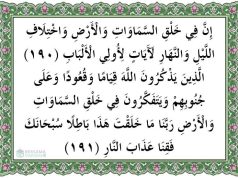 إِنَّ فِي خَلْقِ السَّمَاوَاتِ وَالْأَرْضِ وَاخْتِلَافِ
اللَّيْلِ وَالنَّهَارِ لَآيَاتٍ لِأُولِي الْأَلْبَابِ (١٩٠)
الَّذِينَ يَذْكُرُونَ اللَّهَ قِيَامًا وَقُعُودًا وَعَلَى
جُنُوبِهِمْ وَيَتَفَكَّرُونَ فِي خَلْقِ السَّمَاوَاتِ
وَالْأَرْضِ رَبَّنَا مَا خَلَقْتَ هَذَا بَاطِلًا سُبْحَانَكَ
فَقِنَا عَذَابَ النَّارِ (١٩١)